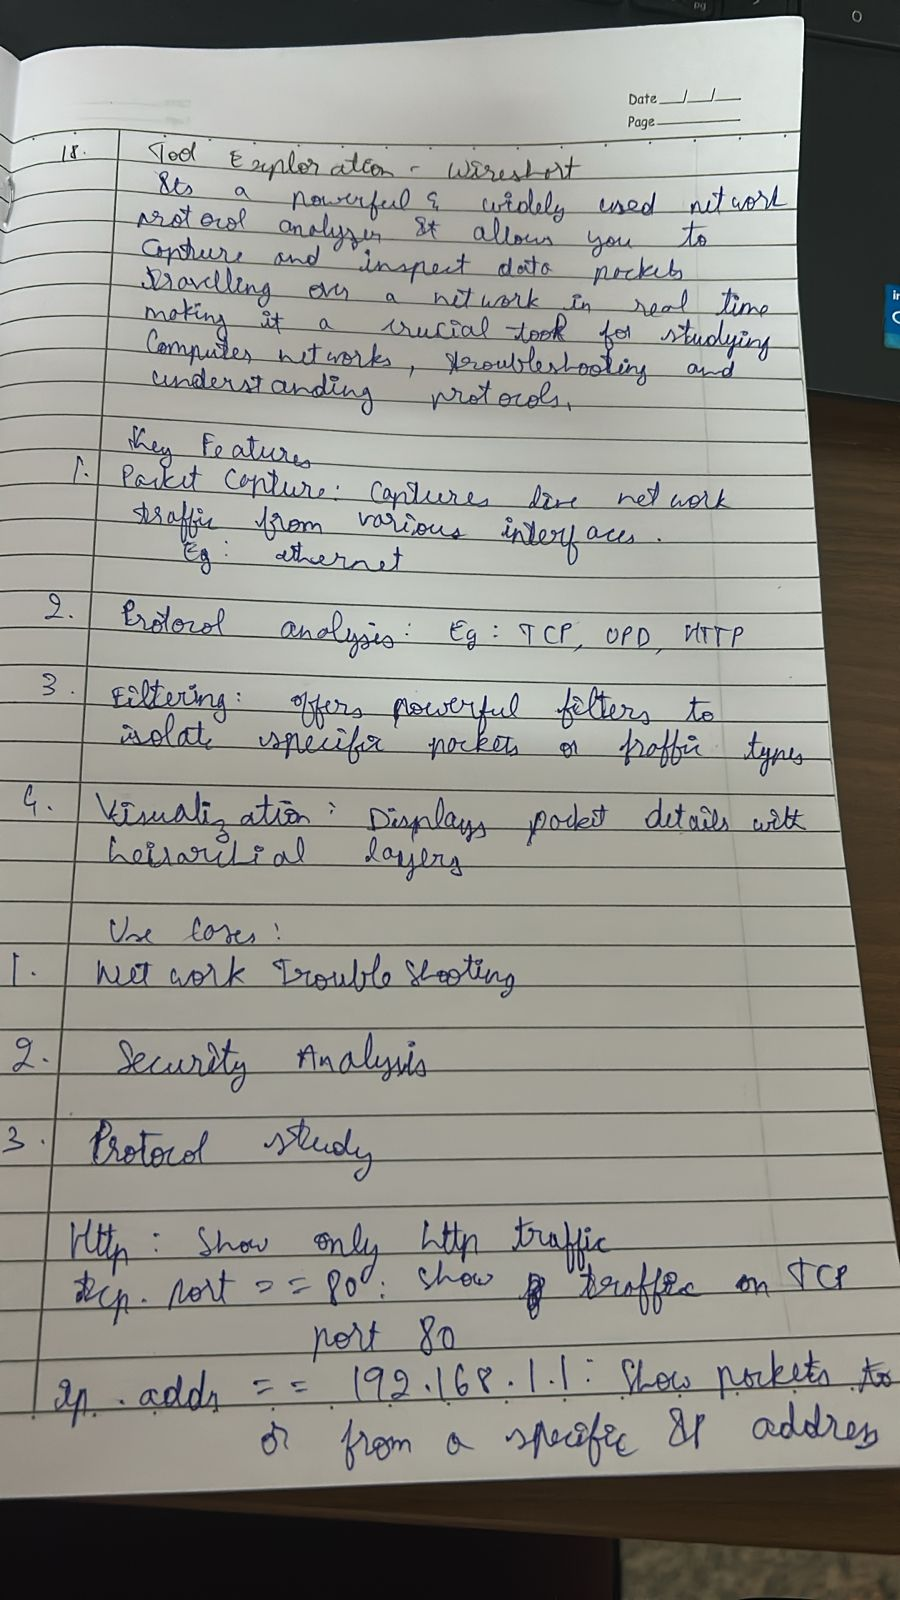 Date __/__/__
Page
18.
Tool Exploration - Wireshort
Its a powerful & widely used network
protocol analyzer It allows you to
Capture and inspect data packets
travelling over a network in real time
making it a crucial took for studying
Computer networks, troubleshooting and
understanding protocols.
Key Features
1. Packet Capture: Captures live network
traffic from various interfaces.
Eg: ethernet
2. Protocol analysis: Eg: TCP, UPD, HTTP
3. Filtering: offers powerful filters to
isolate specific packets or traffic types
4. Visualization: Displays packet details with
heirarichial layers
Use Cases:
1. Network Trouble Shooting
2. Security Analysis
3. Protocol study
Http: Show only http traffic
tcp. port == 80: show traffic on TCP
port 80
Ip. addr == 192.168.1.1: Show packets to
or from a specific IP address